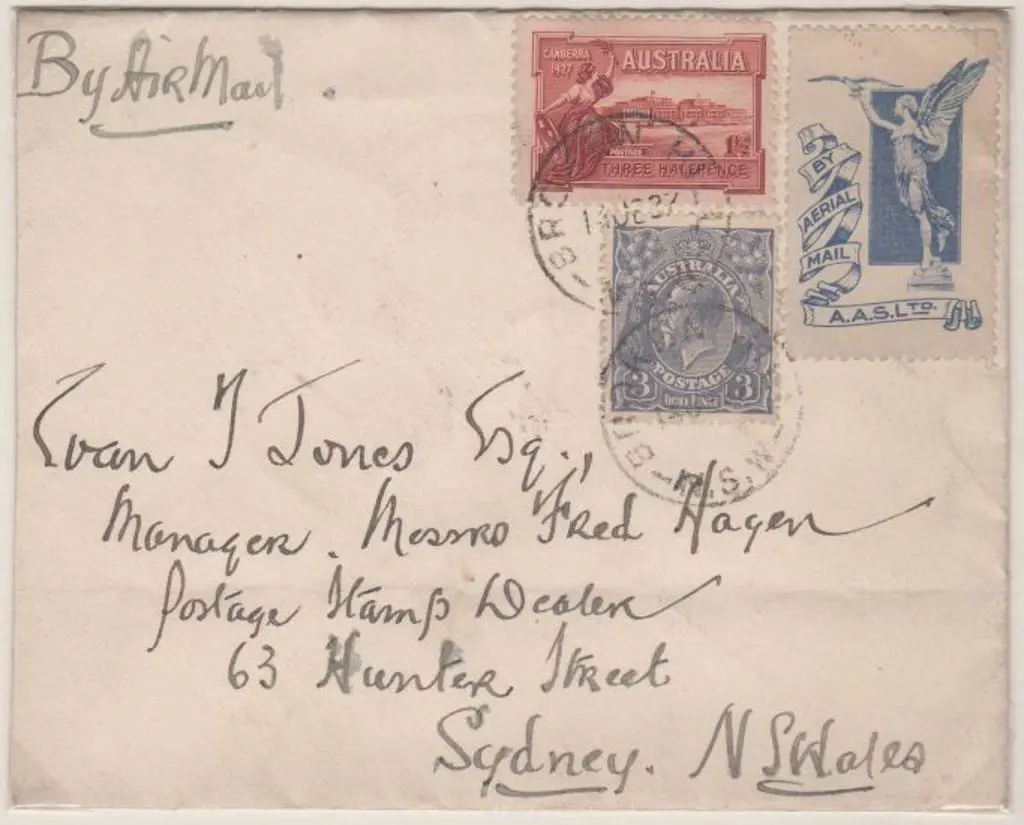 By Air Mail.
CANBERRA
1927
AUSTRALIA
POSTAGE
1½
THREE HALFPENCE
14 DE 27
AUSTRALIA
3 POSTAGE 3
THREE PENCE
N.S.W
BY
AERIAL
MAIL
A.A.S. LTD.
Evan T Jones Esq.,
Manager. Messrs Fred Hagen
Postage Stamp Dealer
63 Hunter Street
Sydney. N S Wales